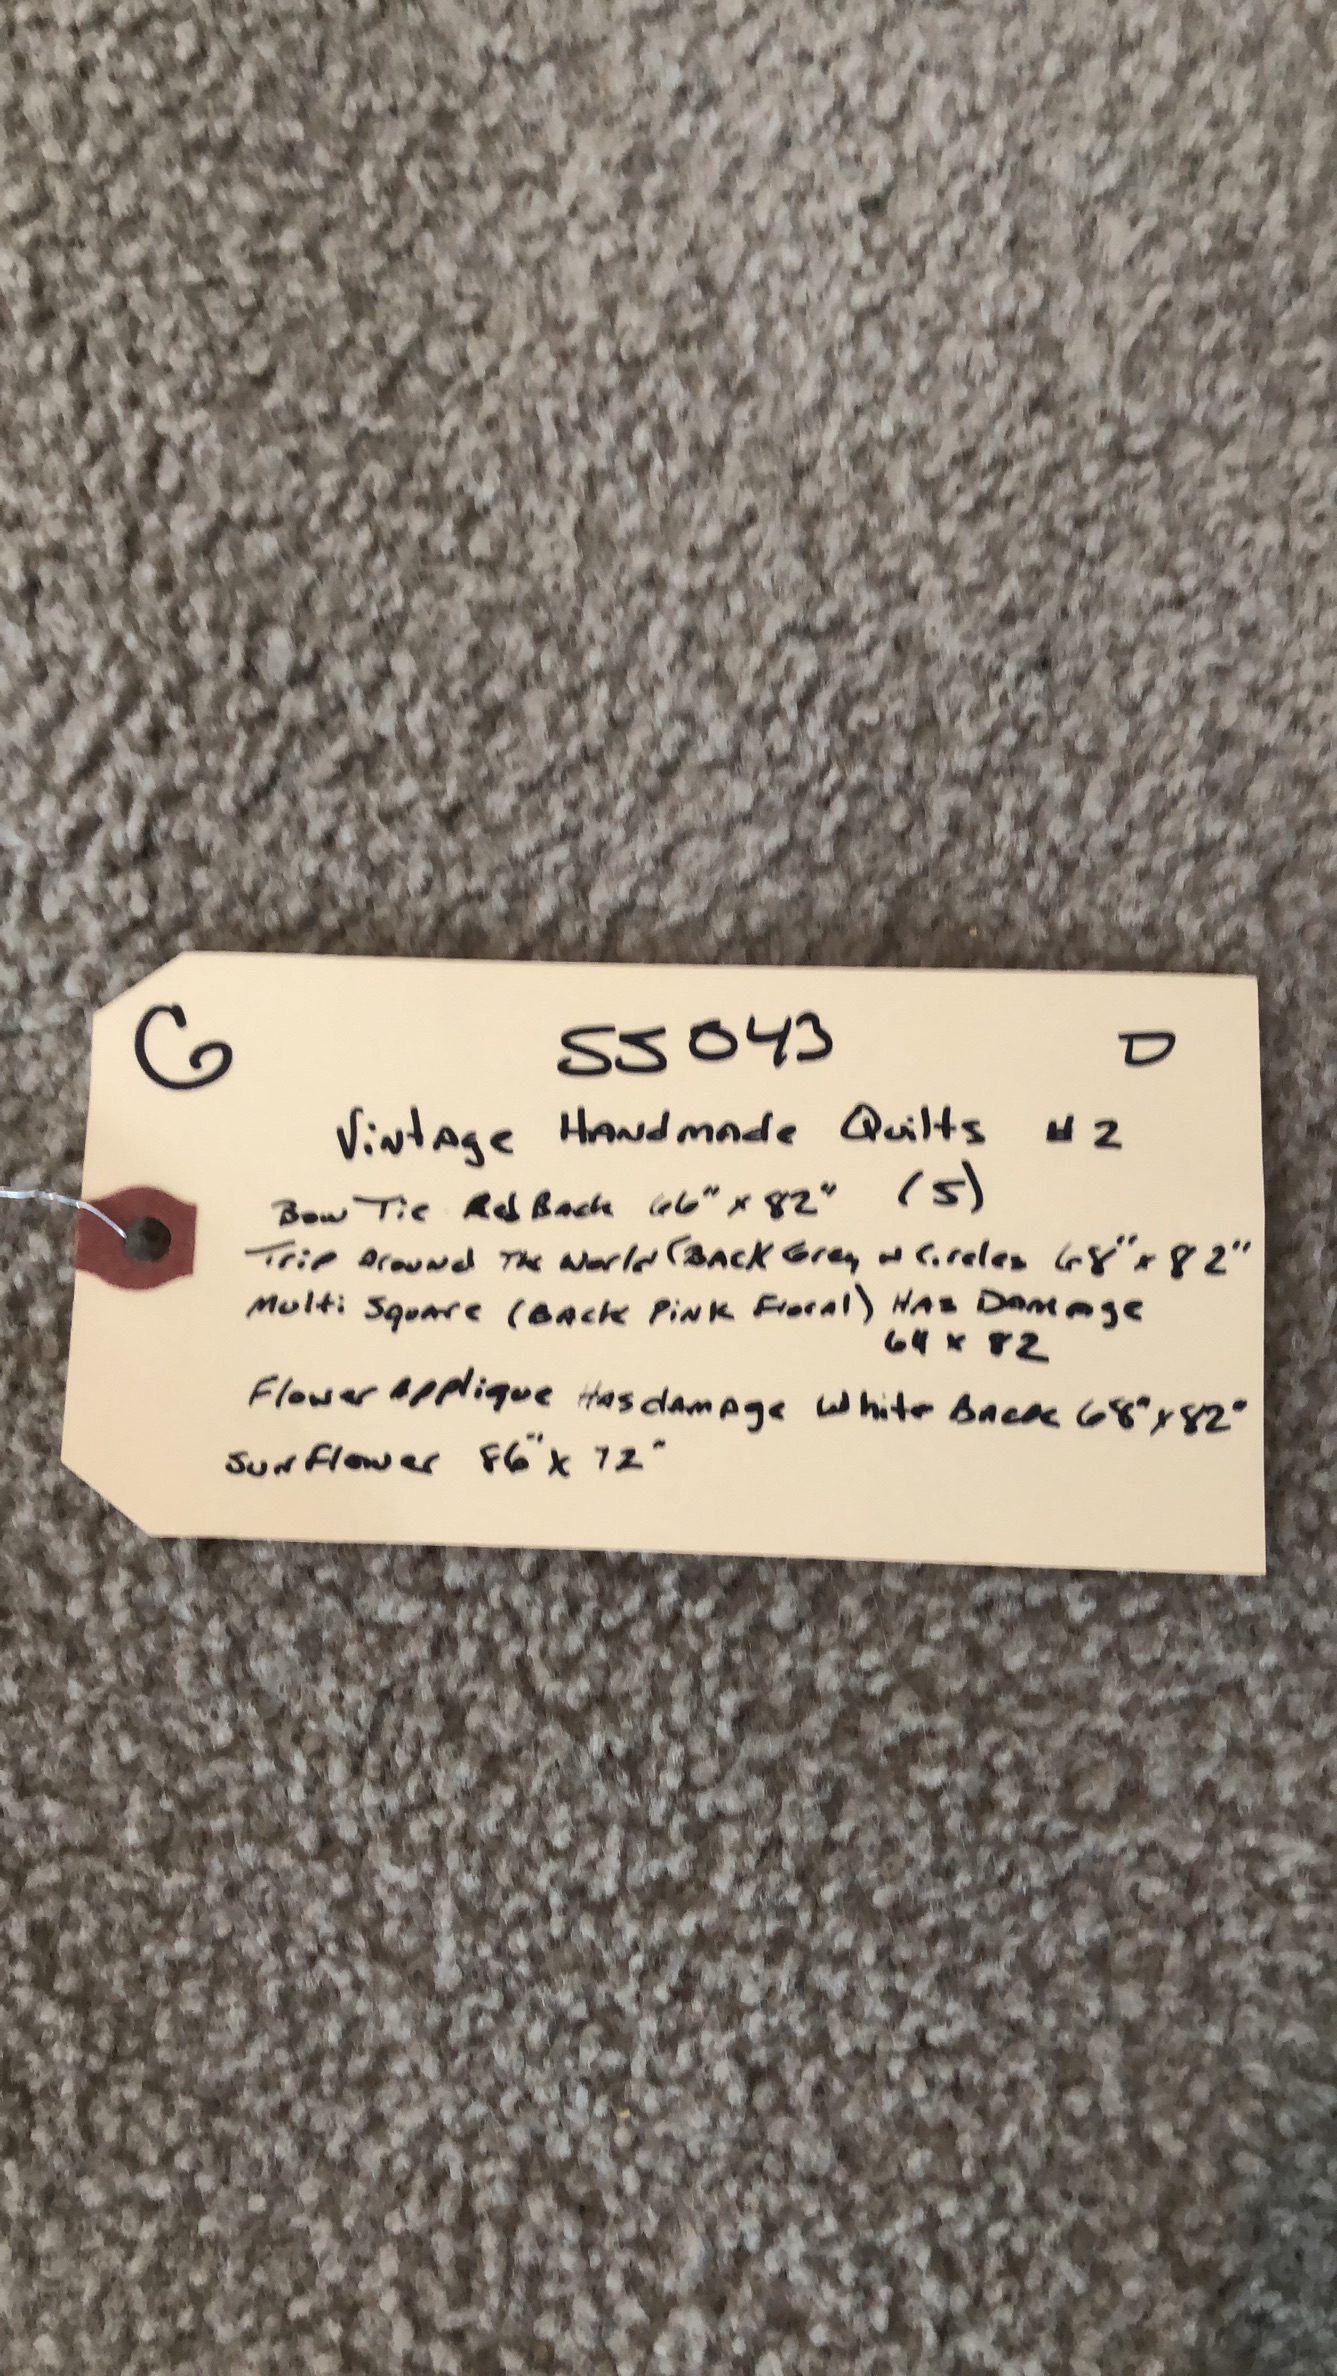 G 55043 D
Vintage Handmade Quilts #2
Bow Tie Red Back 66" x 82" (5)
Trip Around The World (Back Grey w Circles 68" x 82"
Multi Square (Back Pink Floral) Has Damage
64 x 82
Flower Applique Has damage White Back 68" x 82"
Sunflower 86" x 72"